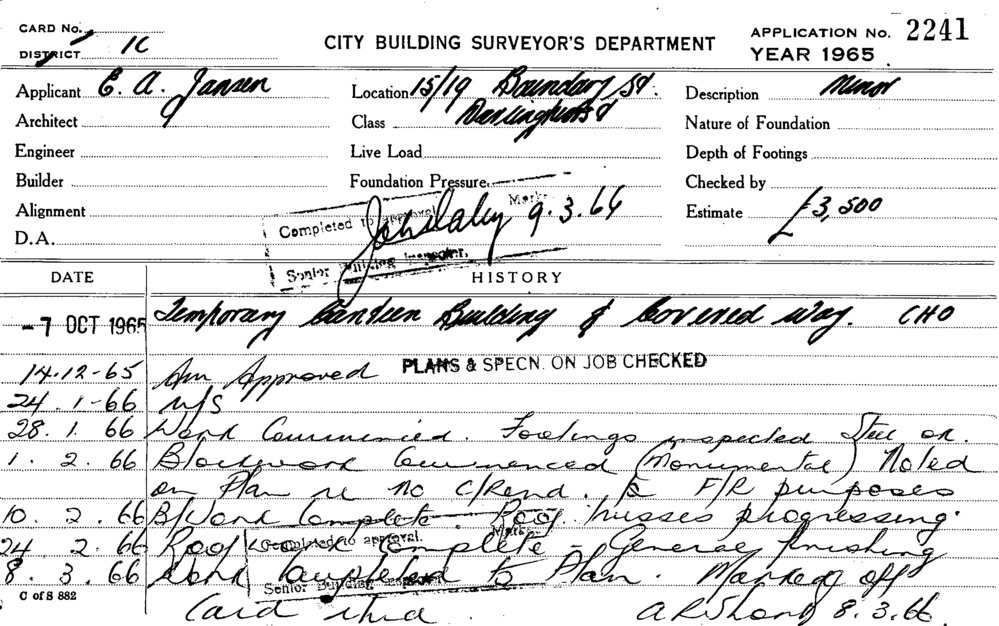 CARD No.
DISTRICT 1C
CITY BUILDING SURVEYOR'S DEPARTMENT
APPLICATION No. 2241
YEAR 1965
Applicant E. A. Jansen
Location 15/19 Boundary St.
Darlinghurst
Description Minor
Architect
Class
Nature of Foundation
Engineer
Live Load
Depth of Footings
Builder
Foundation Pressure
Checked by
Alignment
Completed to approval. Marks 9.3.66
Estimate £3,500
D.A.
Senior Building Inspector.
DATE HISTORY
-7 OCT 1965 Temporary Canteen Building & Covered Way. CHO
PLANS & SPECN. ON JOB CHECKED
14-12-65 Am Approved
24. 1-66 N/S
28. 1. 66 Work Commenced. Footings inspected Steel OK.
1. 2. 66 Blockwork Commenced (Monumental) Noted
on Plan re no C/Rend. for F/R purposes
10. 2. 66 B/Work Complete. Roof trusses progressing.
24 2. 66 Roof Work Complete - General finishing
Completed to approval. Marks
8. 3. 66 Work Completed to Plan. Marked off
Senior Building Inspector
C of S 882
Card 8.3.66